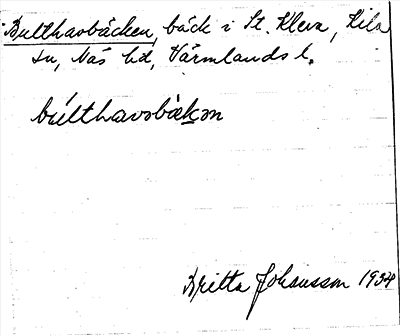 Bulthavsbäcken, bäck i St. Kleva, Kila
sn, Näs hd, Värmlands l.
búlthavsbäkən
Britta Johansson 1934